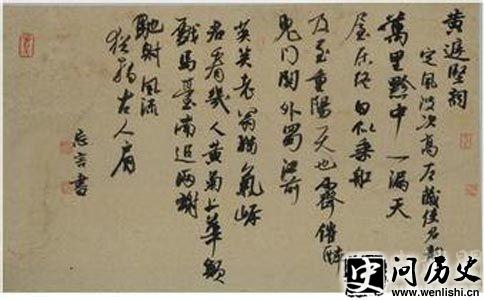 黄庭堅詞
定風波次高左藏使君韻
萬里黔中一漏天
屋居終日似乘船
及至重陽天也霽催醉
鬼門關外蜀江前
莫笑老翁猶氣岸
君看幾人黄菊上華顛
戲馬臺南追兩謝
馳射風流
猶拍古人肩
忘言書
史
问历史
www.wenlishi.cn